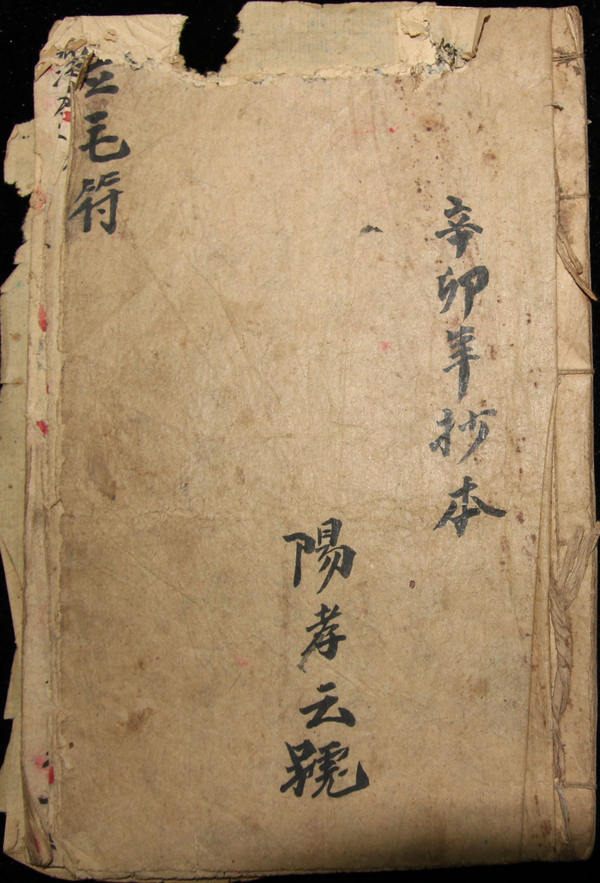 辛卯年抄本
陽孝云號
毛符